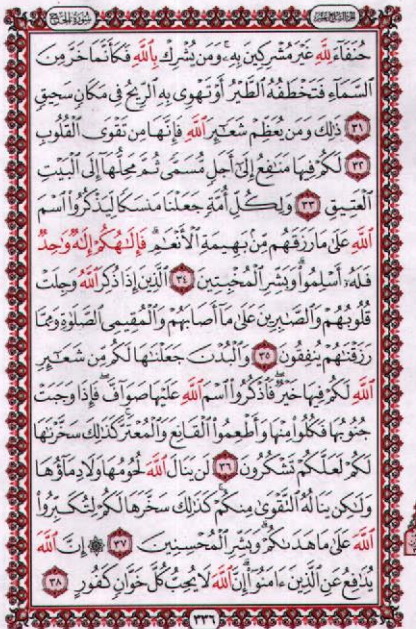 سُورَةُ الحَجِّ
حُنَفَآءَ لِلَّهِ غَيْرَ مُشْرِكِينَ بِهِۦ وَمَن يُشْرِكْ بِٱللَّهِ فَكَأَنَّمَا خَرَّ مِنَ
ٱلسَّمَآءِ فَتَخْطَفُهُ ٱلطَّيْرُ أَوْ تَهْوِى بِهِ ٱلرِّيحُ فِى مَكَانٍ سَحِيقٍ
٣١ ذَٰلِكَ وَمَن يُعَظِّمْ شَعَٰٓئِرَ ٱللَّهِ فَإِنَّهَا مِن تَقْوَى ٱلْقُلُوبِ
٣٢ لَكُمْ فِيهَا مَنَٰفِعُ إِلَىٰٓ أَجَلٍ مُّسَمًّى ثُمَّ مَحِلُّهَآ إِلَى ٱلْبَيْتِ
ٱلْعَتِيقِ ٣٣ وَلِكُلِّ أُمَّةٍ جَعَلْنَا مَنسَكًا لِّيَذْكُرُوا۟ ٱسْمَ
ٱللَّهِ عَلَىٰ مَا رَزَقَهُم مِّنۢ بَهِيمَةِ ٱلْأَنْعَٰمِ فَإِلَٰهُكُمْ إِلَٰهٌ وَٰحِدٌ
فَلَهُۥٓ أَسْلِمُوا۟ وَبَشِّرِ ٱلْمُخْبِتِينَ ٣٤ ٱلَّذِينَ إِذَا ذُكِرَ ٱللَّهُ وَجِلَتْ
قُلُوبُهُمْ وَٱلصَّٰبِرِينَ عَلَىٰ مَآ أَصَابَهُمْ وَٱلْمُقِيمِى ٱلصَّلَوٰةِ وَمِمَّا
رَزَقْنَٰهُمْ يُنفِقُونَ ٣٥ وَٱلْبُدْنَ جَعَلْنَٰهَا لَكُم مِّن شَعَٰٓئِرِ
ٱللَّهِ لَكُمْ فِيهَا خَيْرٌ فَٱذْكُرُوا۟ ٱسْمَ ٱللَّهِ عَلَيْهَا صَوَآفَّ فَإِذَا وَجَبَتْ
جُنُوبُهَا فَكُلُوا۟ مِنْهَا وَأَطْعِمُوا۟ ٱلْقَانِعَ وَٱلْمُعْتَرَّ كَذَٰلِكَ سَخَّرْنَٰهَا
لَكُمْ لَعَلَّكُمْ تَشْكُرُونَ ٣٦ لَن يَنَالَ ٱللَّهَ لُحُومُهَا وَلَا دِمَآؤُهَا
وَلَٰكِن يَنَالُهُ ٱلتَّقْوَىٰ مِنكُمْ كَذَٰلِكَ سَخَّرَهَا لَكُمْ لِتُكَبِّرُوا۟
ٱللَّهَ عَلَىٰ مَا هَدَىٰكُمْ وَبَشِّرِ ٱلْمُحْسِنِينَ ٣٧ ۞ إِنَّ ٱللَّهَ
يُدَٰفِعُ عَنِ ٱلَّذِينَ ءَامَنُوٓا۟ إِنَّ ٱللَّهَ لَا يُحِبُّ كُلَّ خَوَّانٍ كَفُورٍ ٣٨
٣٣٦